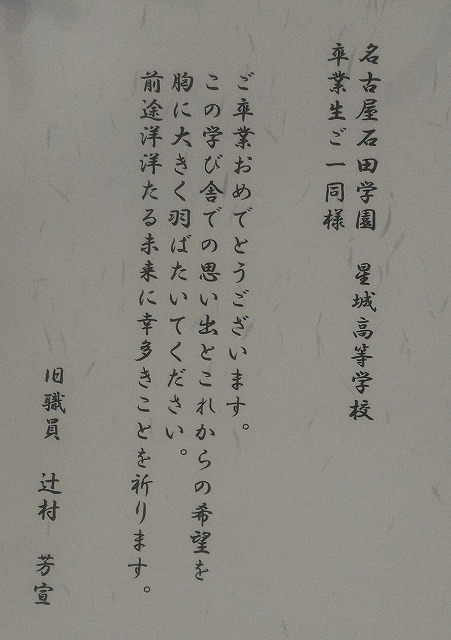 名古屋石田学園　星城高等学校
卒業生ご一同様
ご卒業おめでとうございます。
この学び舎での思い出とこれからの希望を
胸に大きく羽ばたいてください。
前途洋洋たる未来に幸多きことを祈ります。
旧職員　辻村　芳宣